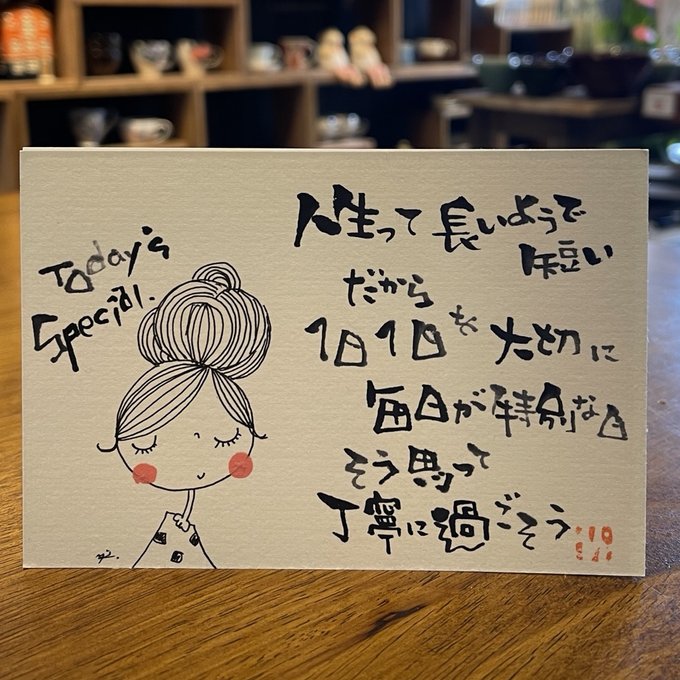 Today's
Special.
人生って長いようで
短い
だから
1日1日を大切に
毎日が特別な日
そう思って
丁寧に過ごそう